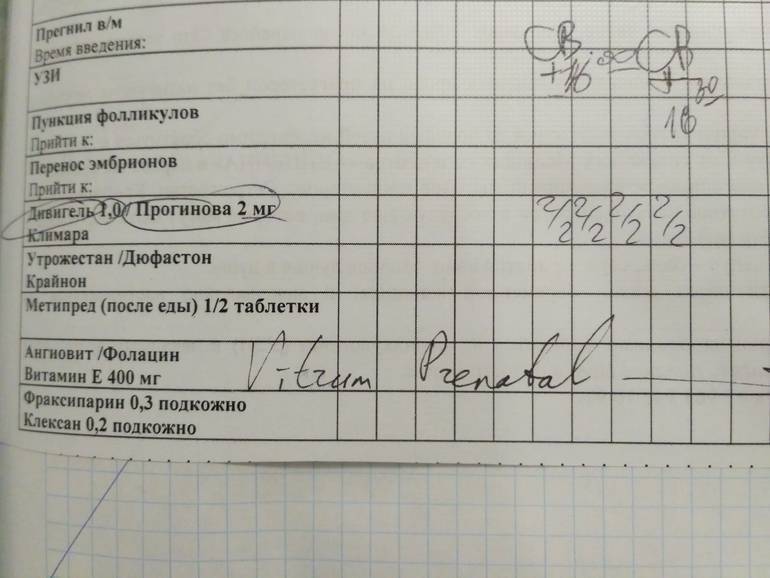 Прегнил в/м
Время введения:
УЗИ
Пункция фолликулов
Прийти к:
Перенос эмбрионов
Прийти к:
Дивигель 1,0/ Прогинова 2 мг
2/2 2/2 2/2 2/2
Климара
Утрожестан /Дюфастон
Крайнон
Метипред (после еды) 1/2 таблетки
Ангиовит /Фолацин
Витамин Е 400 мг
Vitrum Prenatal
Фраксипарин 0,3 подкожно
Клексан 0,2 подкожно